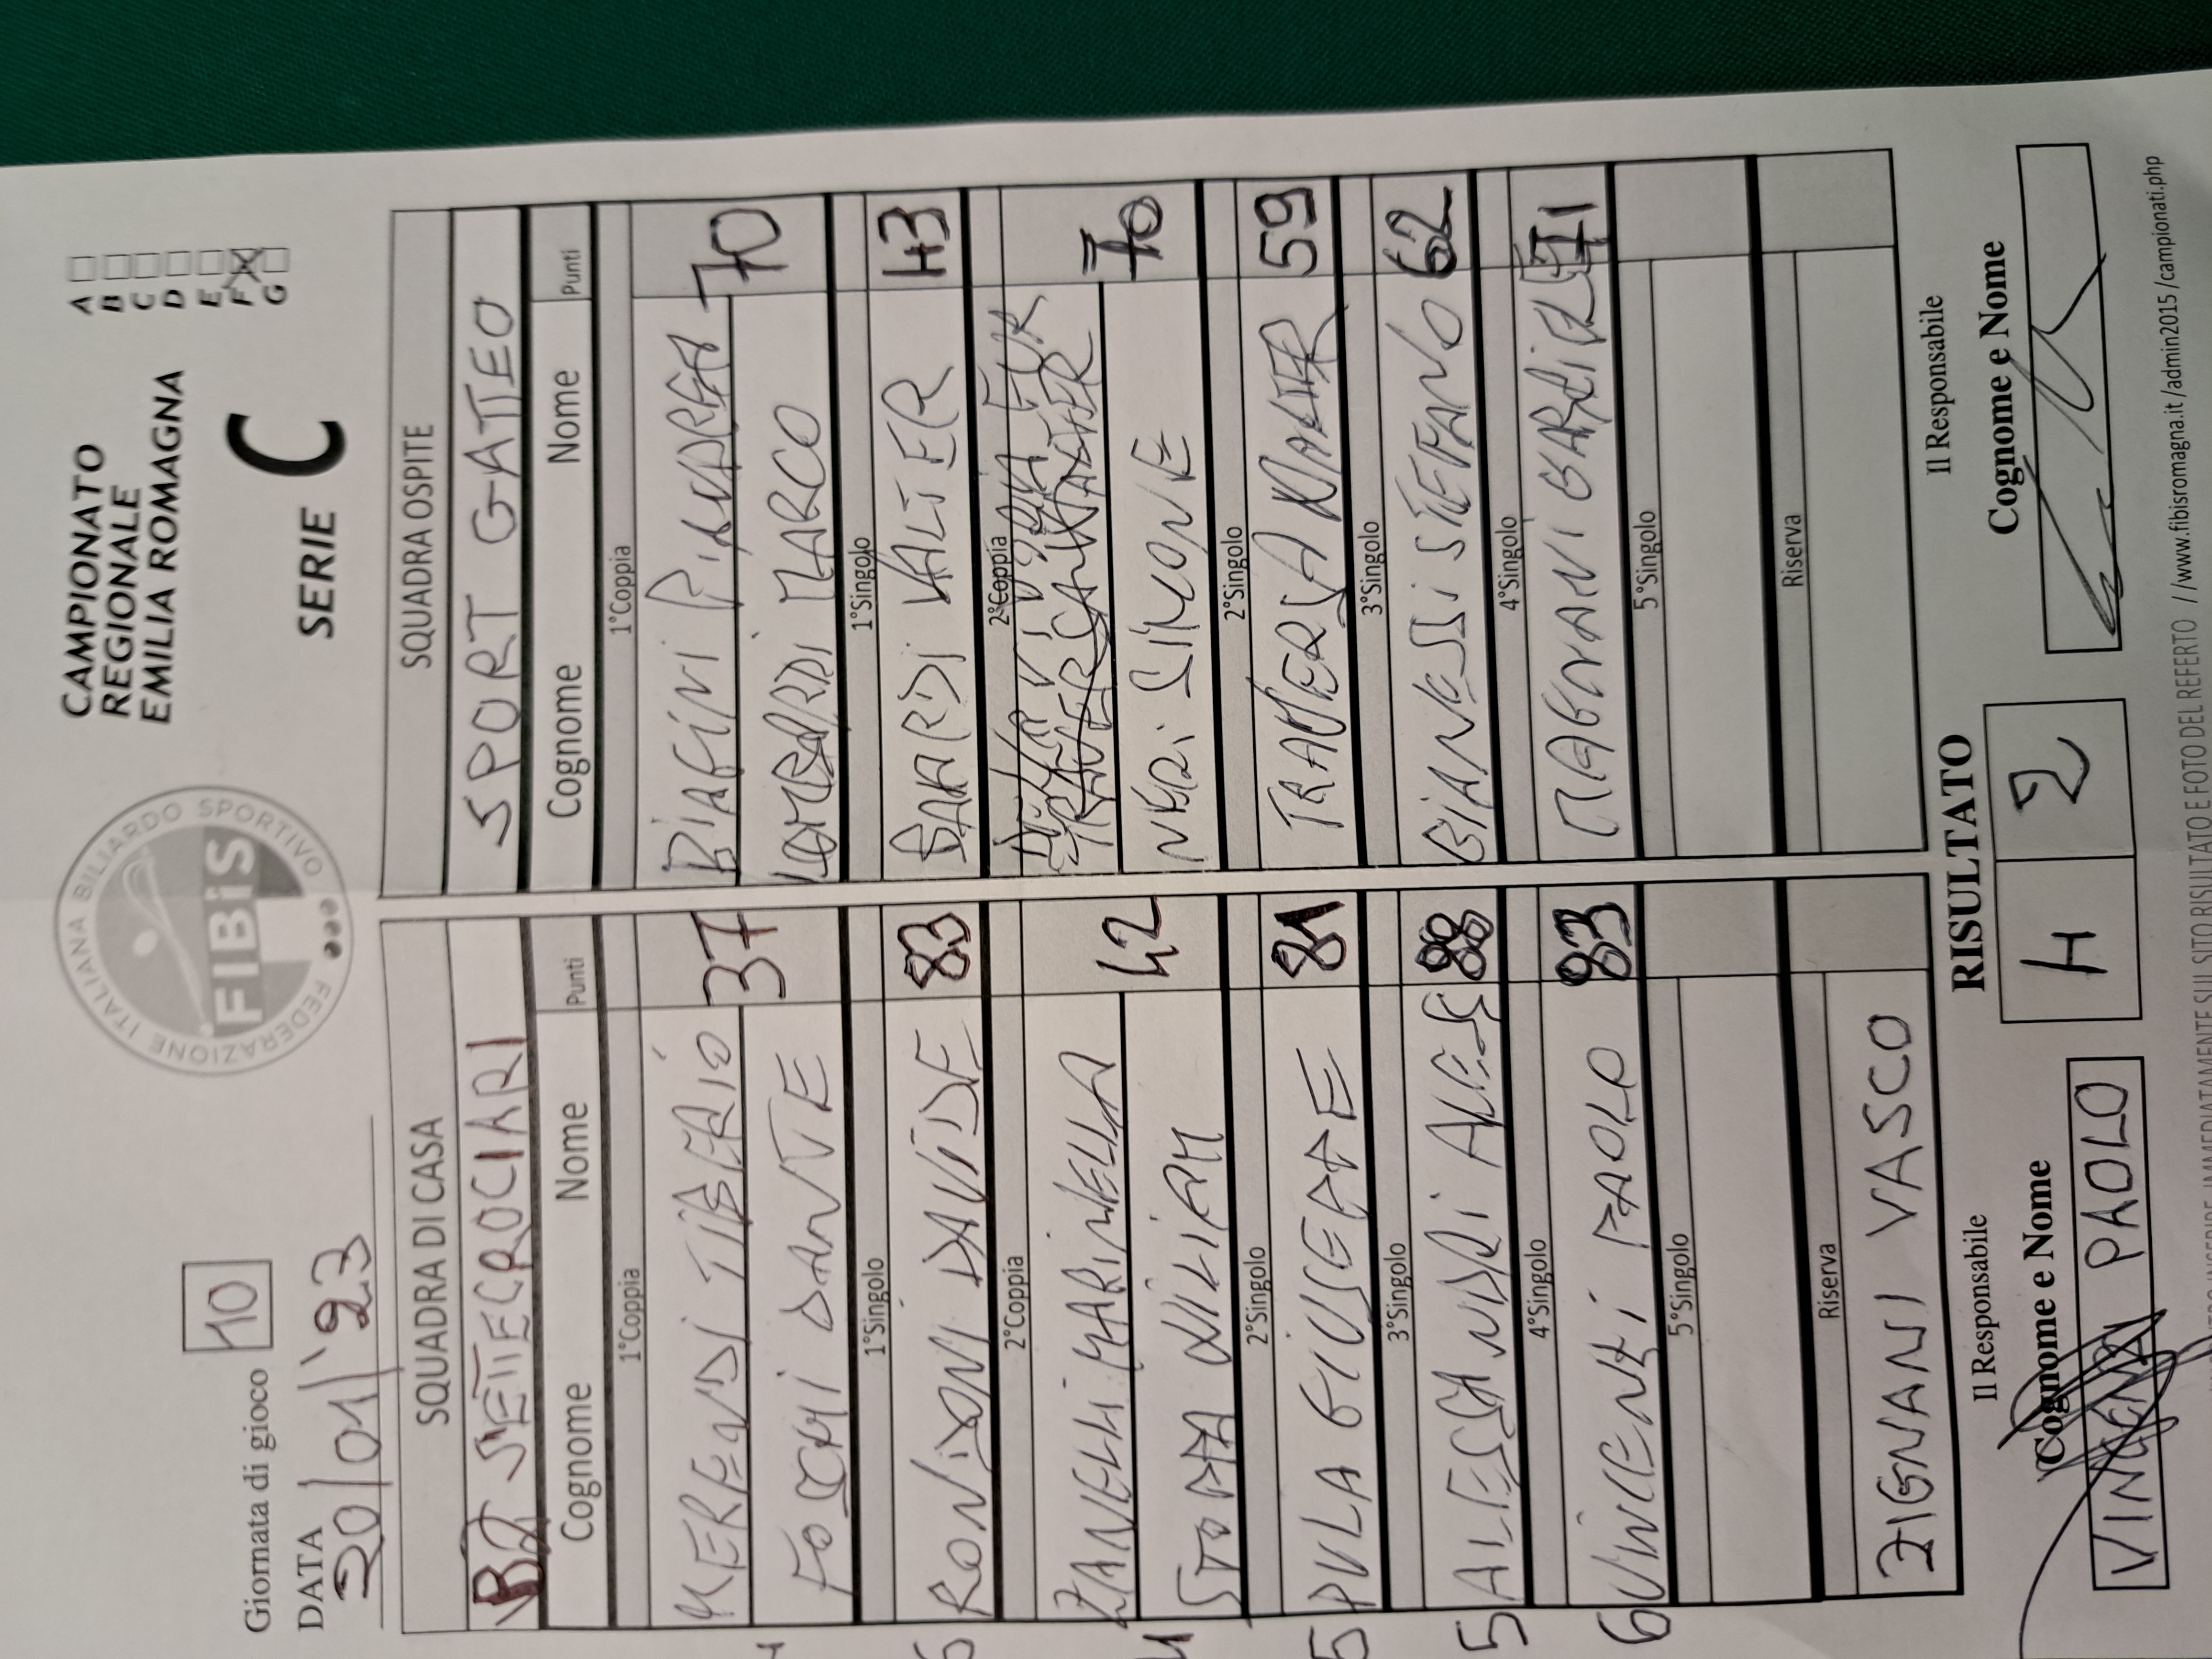 Giornata di gioco 10
DATA
20/01/'23
FEDERAZIONE ITALIANA BILIARDO SPORTIVO
FIBiS
CAMPIONATO
REGIONALE
EMILIA ROMAGNA
SERIE C
A
B
C
D
E
F X
G
SQUADRA DI CASA
B2 SETTECROCIARI
Cognome Nome Punti
1°Coppia
MERENDI TIBERIO
FOSCHI DANTE
37
1°Singolo
RONDONI DAVIDE 83
2°Coppia
ZANELLI MARINELLA
STOPPA WILIAM
42
2°Singolo
PULA GIUSEPPE 81
3°Singolo
ALESSANDRI ALESS 88
4°Singolo
VINCENZI PAOLO 83
5°Singolo
Riserva
ZIGNANI VASCO
4
5
4
5
5
6
SQUADRA OSPITE
SPORT GATTEO
Cognome Nome Punti
1°Coppia
BIAGINI ANDREA
MARCO
70
1°Singolo
VALTER 43
2°Coppia
NERI SIMONE
70
2°Singolo
TRAVERSA WALTER 59
3°Singolo
BIANESSI STEFANO 62
4°Singolo
MAGNANI GABRIEL 71
5°Singolo
Riserva
Il Responsabile
Cognome e Nome
VINCENZI PAOLO
RISULTATO
4 2
Il Responsabile
Cognome e Nome
IMMEDIATAMENTE SUL SITO RISULTATO E FOTO DEL REFERTO //www.fibisromagna.it/admin2015/campionati.php